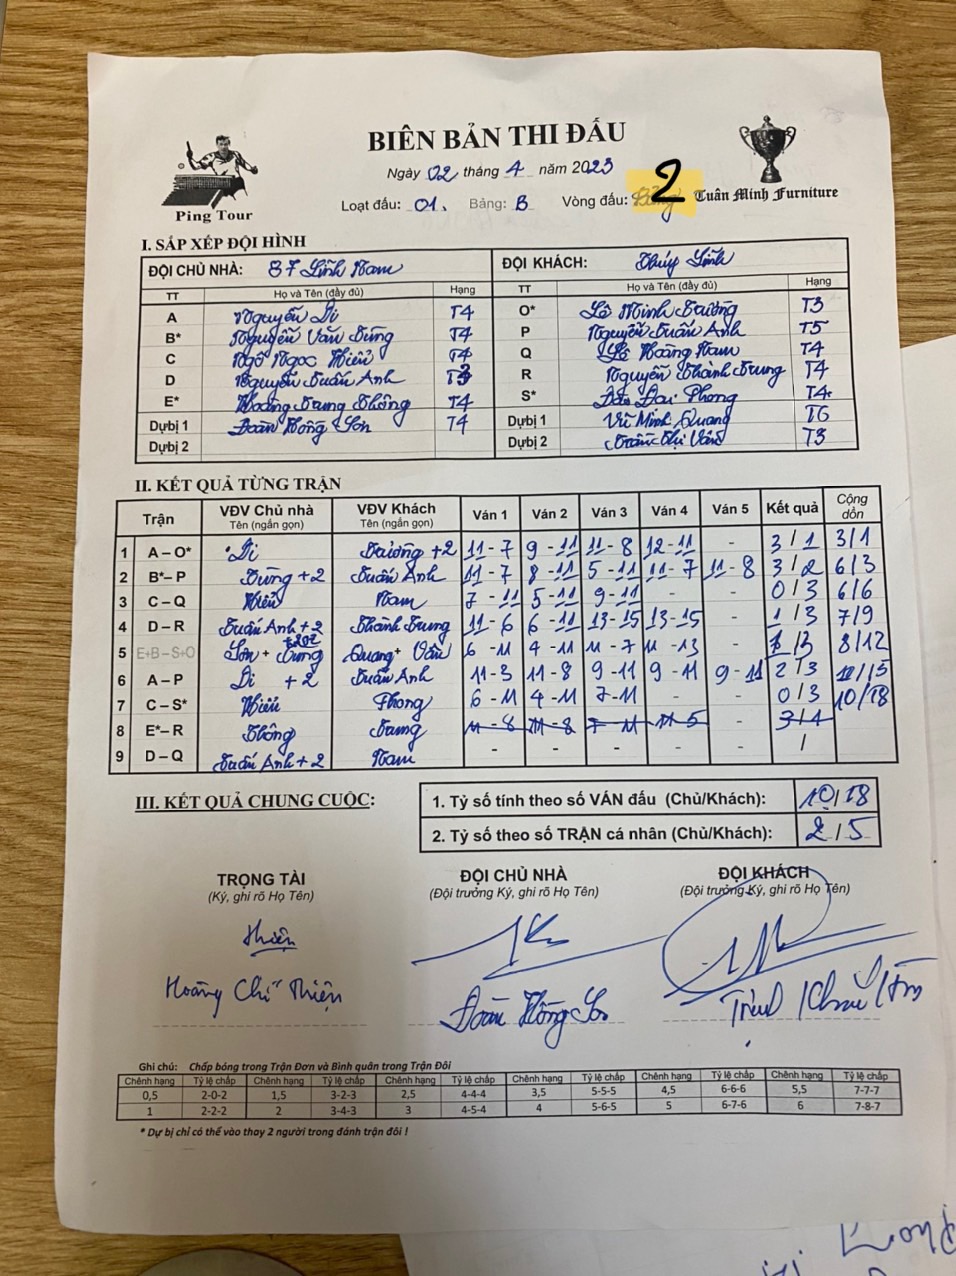 BIÊN BẢN THI ĐẤU
Ngày 02 tháng 4 năm 2023
Loạt đấu: 01. Bảng: B Vòng đấu: 2
Ping Tour
Tuân Minh Furniture
I. SẮP XẾP ĐỘI HÌNH
ĐỘI CHỦ NHÀ: 87 Lĩnh Nam ĐỘI KHÁCH: Thúy Linh
TT Họ và Tên (đầy đủ) Hạng TT Họ và Tên (đầy đủ) Hạng
A Nguyễn Di T4 O* Lê Minh Trường T3
B* Nguyễn Văn Dũng T4 P Nguyễn Tuấn Anh T5
C Ngô Ngọc Hiển T4 Q Lê Hoàng Nam T4
D Nguyễn Tuấn Anh R Nguyễn Thành Trung T4
E* Hoàng Trung Thông T4 S* Đại Phong T4
Dự bị 1 Đoàn Hồng Sơn T4 Dự bị 1 Vũ Minh Quang T6
Dự bị 2 Dự bị 2 Trần Thị Vân T3
II. KẾT QUẢ TỪNG TRẬN
Trận VĐV Chủ nhà Tên (ngắn gọn) VĐV Khách Tên (ngắn gọn) Ván 1 Ván 2 Ván 3 Ván 4 Ván 5 Kết quả Cộng dồn
1 A – O* Di Trường +2 11 - 7 9 - 11 11 - 8 12 - 11 - 3 / 1 3/1
2 B* – P Dũng +2 Tuấn Anh 11 - 7 8 - 11 5 - 11 11 - 7 11 - 8 3 / 2 6/3
3 C – Q Hiển Nam 7 - 11 5 - 11 9 - 11 - - 0 / 3 6/6
4 D – R Tuấn Anh +2 Thành Trung 11 - 6 6 - 11 13 - 15 13 - 15 - 1 / 3 7/9
5 E+B – S+O Sơn + Dũng Quang + Vân 6 - 11 4 - 11 11 - 7 11 - 13 - 1/3 8/12
6 A – P Di +2 Tuấn Anh 11 - 3 11 - 8 9 - 11 9 - 11 9 - 11 2 / 3 /15
7 C – S* Hiển Phong 6 - 11 4 - 11 7 - 11 - - 0 / 3 10/18
8 E* – R Thông Trung 11 - 8 11 - 8 7 - 11 11 - 5 -
9 D – Q Tuấn Anh +2 Nam - - - - - /
III. KẾT QUẢ CHUNG CUỘC:
1. Tỷ số tính theo số VÁN đấu (Chủ/Khách): 10/18
2. Tỷ số theo số TRẬN cá nhân (Chủ/Khách): 2/5
TRỌNG TÀI ĐỘI CHỦ NHÀ ĐỘI KHÁCH
(Ký, ghi rõ Họ Tên) (Đội trưởng Ký, ghi rõ Họ Tên) (Đội trưởng Ký, ghi rõ Họ Tên)
Thiện
Hoàng Chí Thiện Đoàn Hồng Sơn
Ghi chú: Chấp bóng trong Trận Đơn và Bình quân trong Trận Đôi
Chênh hạng Tỷ lệ chấp Chênh hạng Tỷ lệ chấp Chênh hạng Tỷ lệ chấp Chênh hạng Tỷ lệ chấp Chênh hạng Tỷ lệ chấp Chênh hạng Tỷ lệ chấp
0,5 2-0-2 1,5 3-2-3 2,5 4-4-4 3,5 5-5-5 4,5 6-6-6 5,5 7-7-7
1 2-2-2 2 3-4-3 3 4-5-4 4 5-6-5 5 6-7-6 6 7-8-7
* Dự bị chỉ có thể vào thay 2 người trong đánh trận đôi !